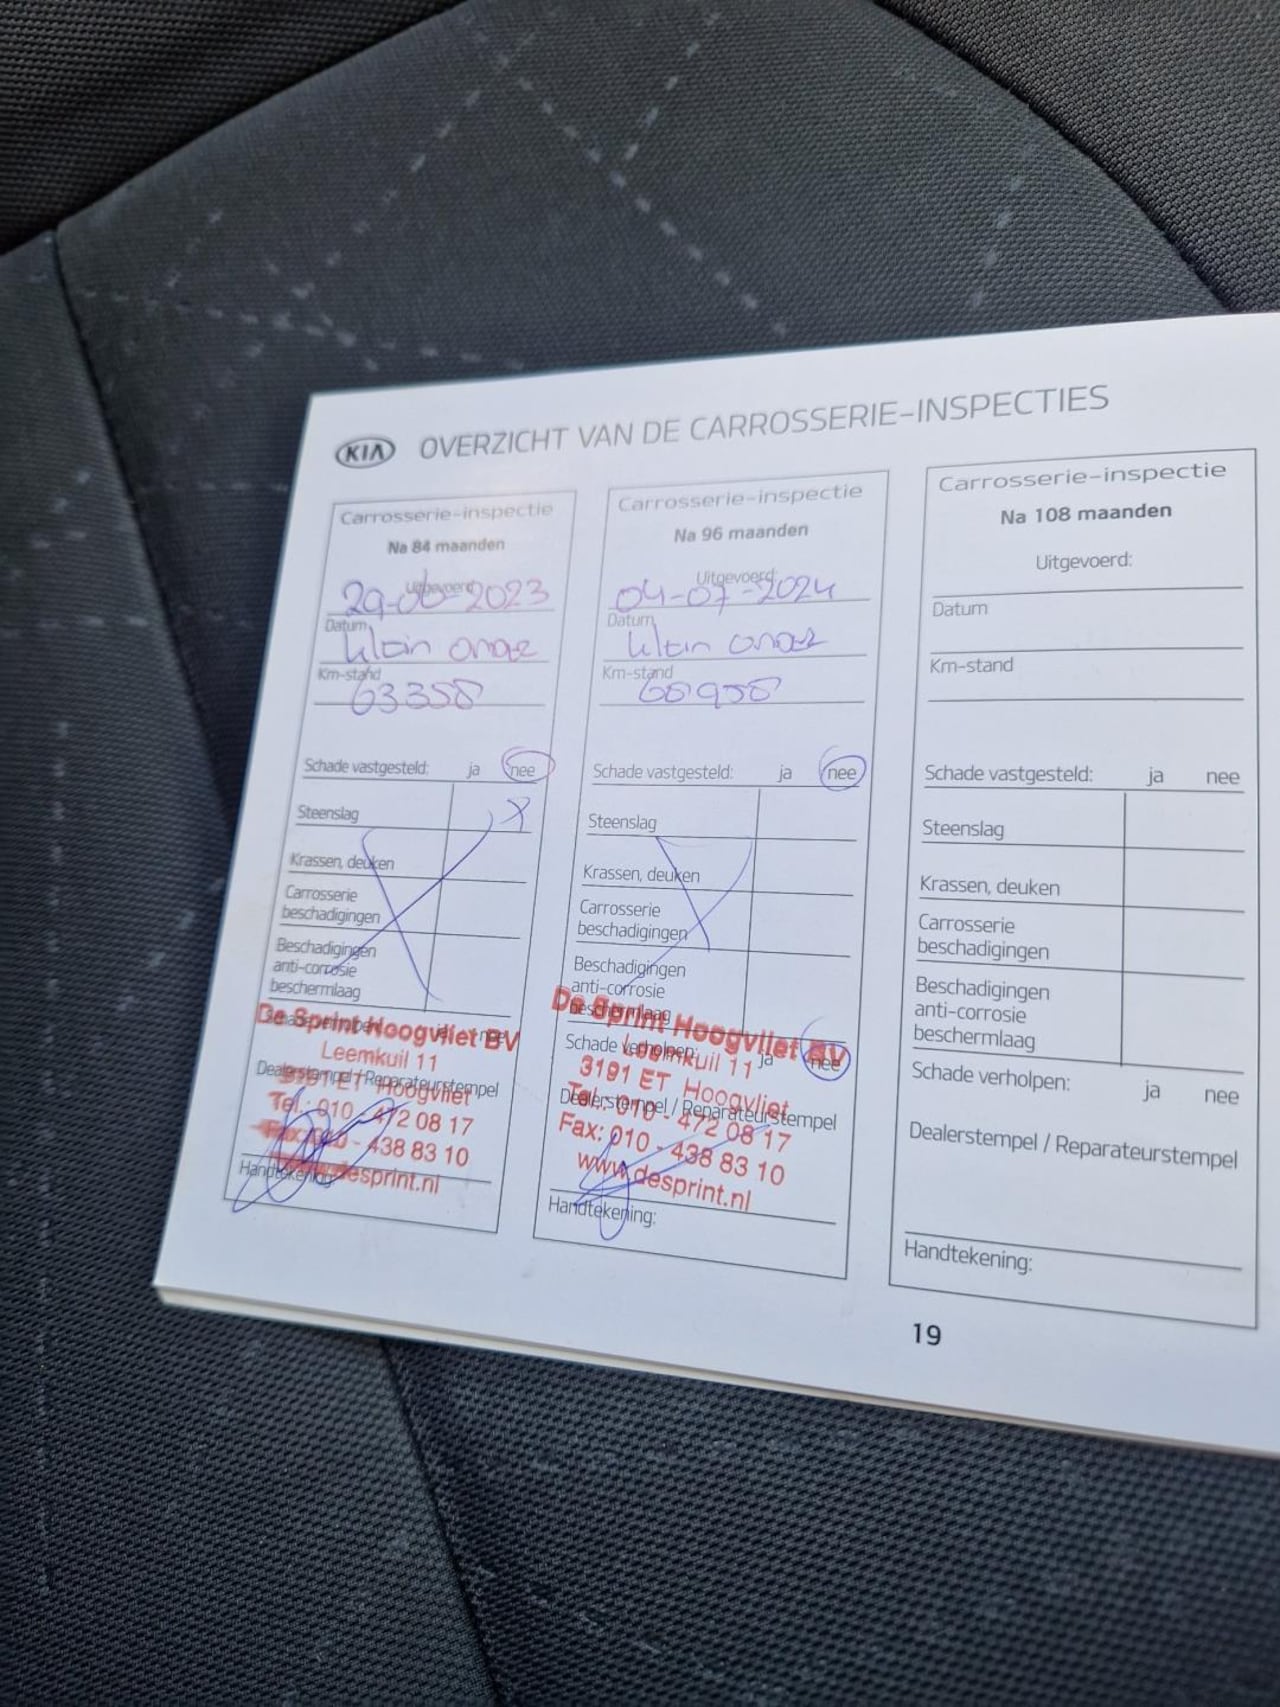 KIA OVERZICHT VAN DE CARROSSERIE-INSPECTIES
Carrosserie-inspectie
Na 84 maanden
Uitgevoerd:
29-06-2023
Datum
klein onder
Km-stand
63358
Schade vastgesteld: ja nee
Steenslag X
Krassen, deuken
Carrosserie
beschadigingen
Beschadigingen
anti-corrosie
beschermlaag
De Sprint Hoogvliet BV
Leemkuil 11
Dealerstempel / Reparateurstempel
3191 ET Hoogvliet
Tel.: 010 - 472 08 17
Fax: 010 - 438 83 10
www.desprint.nl
Handtekening:
Carrosserie-inspectie
Na 96 maanden
Uitgevoerd:
04-07-2024
Datum
klein onder
Km-stand
Schade vastgesteld: ja nee
Steenslag
Krassen, deuken
Carrosserie
beschadigingen
Beschadigingen
anti-corrosie
beschermlaag
De Sprint Hoogvliet BV
Schade verholpen: ja nee
Leemkuil 11
3191 ET Hoogvliet
Dealerstempel / Reparateurstempel
Tel.: 010 - 472 08 17
Fax: 010 - 438 83 10
www.desprint.nl
Handtekening:
Carrosserie-inspectie
Na 108 maanden
Uitgevoerd:
Datum
Km-stand
Schade vastgesteld: ja nee
Steenslag
Krassen, deuken
Carrosserie
beschadigingen
Beschadigingen
anti-corrosie
beschermlaag
Schade verholpen: ja nee
Dealerstempel / Reparateurstempel
Handtekening:
19